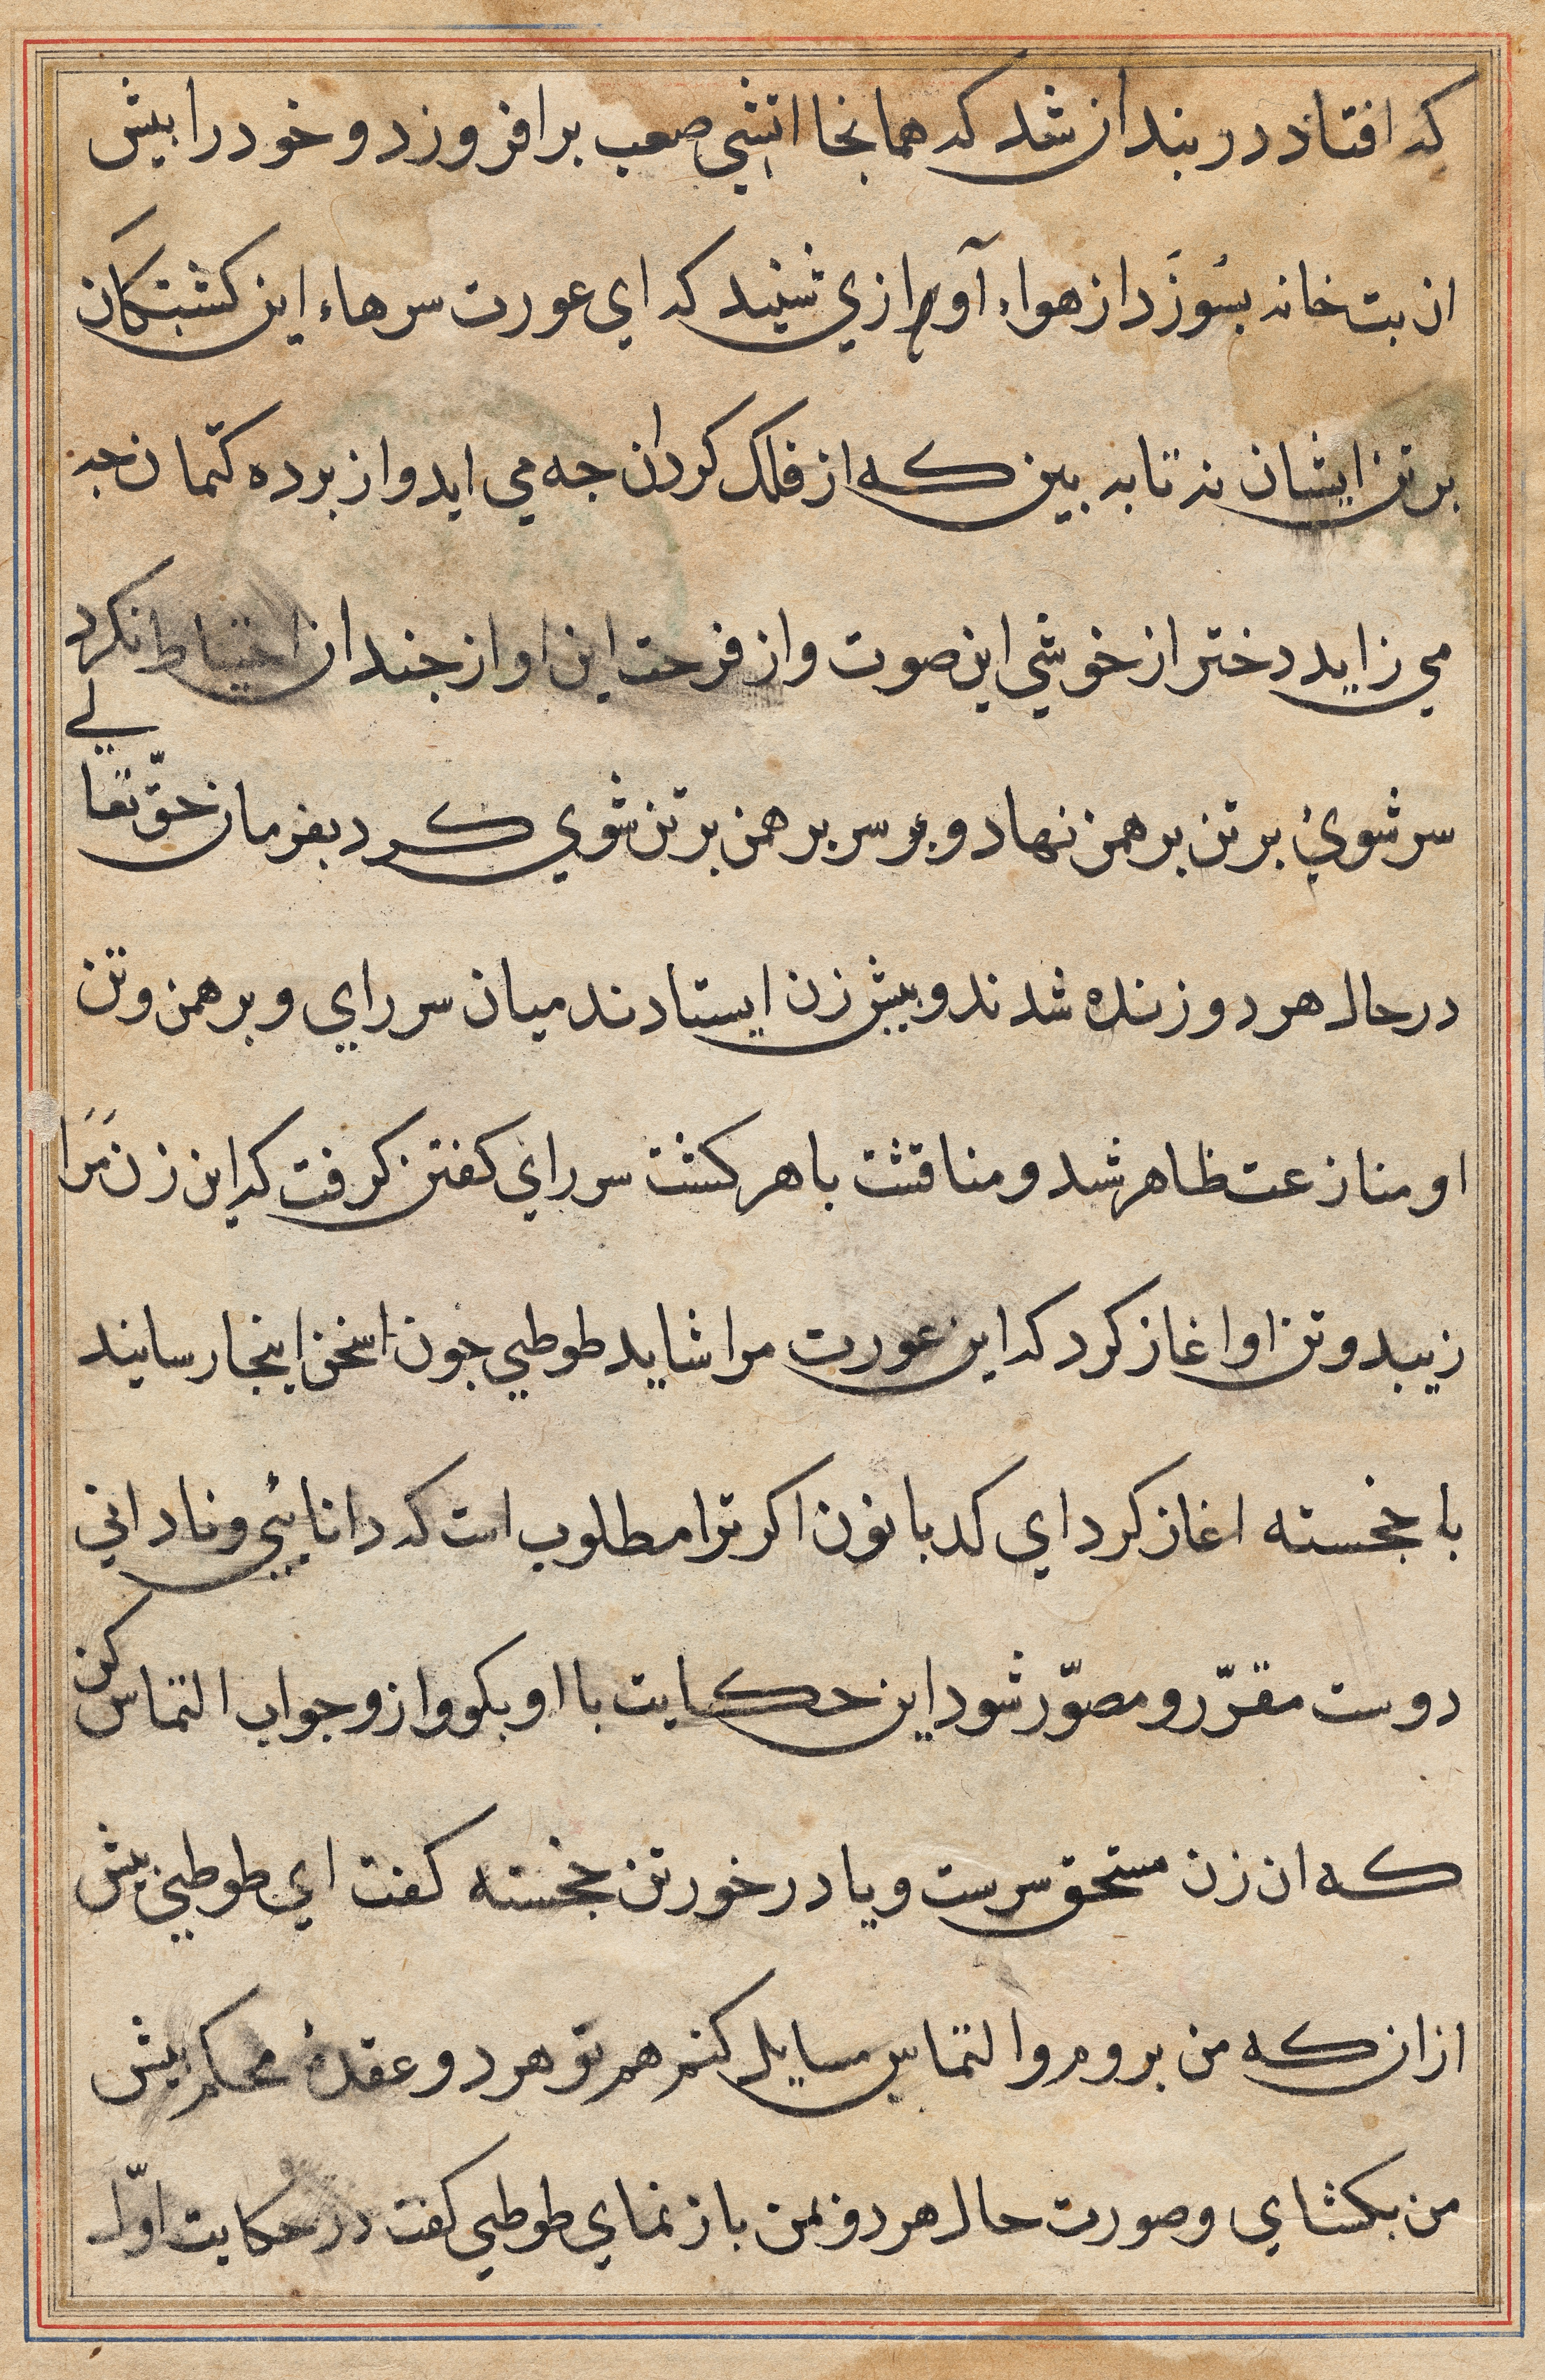 که افتاد در بند ان شد که همانجا اتشي صعب برافروزد و خود را بيش
ان بت خانه بسوزد از هواء آوازي شنيد که اي عورت سرهاء اين کشتکان
بر تن ايشان نه تا به بين که از فلک کردان جه مي ايد و از برده کتمان جه
مي زايد دختر از خوشي اين صوت و از فرحت اين اواز جندان احتياط نکرد
سر شوي بر تن برهمن نهاد و سر برهمن بر تن شوي کرد بفرمان حقّ تعالي
در حال هر دو زنده شدند و بيش زن ايستادند ميان سر راي و برهمن و تن
او منازعت ظاهر شد و مناقشت باهر کشت سر راي کفتن کرفت که اين زن مرا
زيبد و تن او اغاز کرد که اين عورت مرا شايد طوطي جون سخن اينجا رسانيد
با خجسته اغاز کرد اي کدبانون اکر ترا مطلوب است که دانايي و ناداني
دوست مقرّر و مصوّر شود اين حکايت با او بکو و ازو جواب التماس کن
که ان زن مستحق سرست و يا در خور تن خجسته کفت اي طوطي بيش
ازان که من بروم و التماس مسايل کنم هم تو هر دو عقدهٔ محکم بيش
من بکشاي و صورت حال هر دو بمن باز نماي طوطي کفت در حکايت اوّل